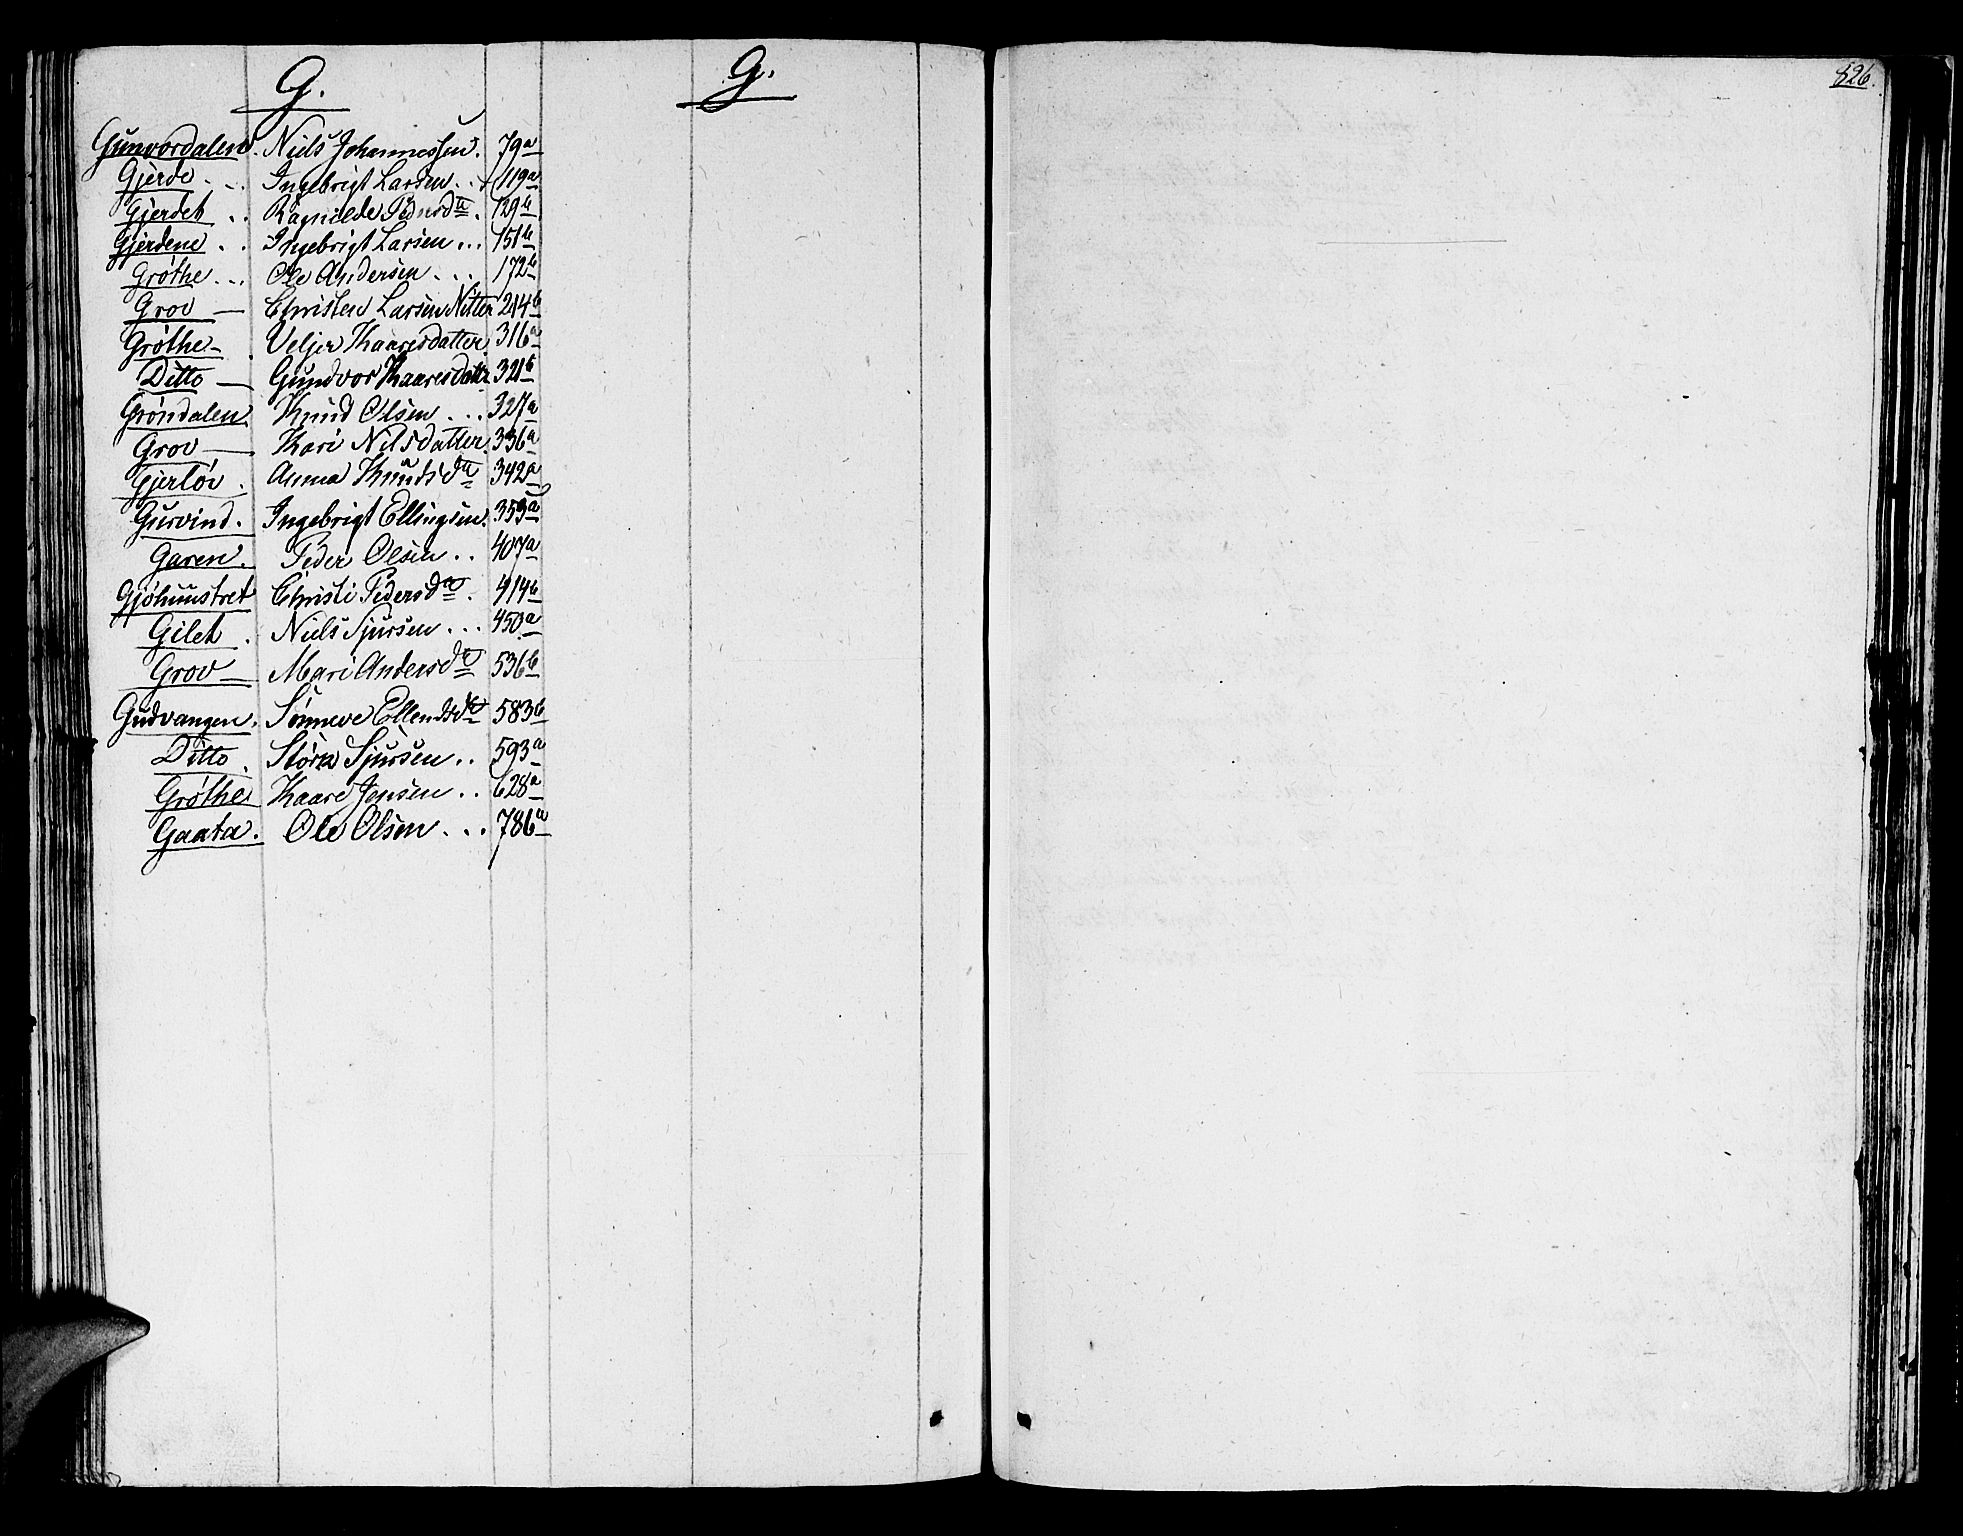 G.
Gunvordalen. Niels Johannessen. 79a
Gjerde . . . Ingebrigt Larsen . . 119a
Gjerdet . . Ragnilde Pedersdtr. 129b
Gjerdene . . Ingebrigt Larsen . . . 151b
Grøthe . . . Ole Andersen . . . 172b
Grov — Christen Larsen Nitter 214b
Grøthe — Veljer Kaaresdatter 316a
Ditto — Gundvor Kaaresdattr 321b
Grøndalen Knud Olsen . . . 327a
Grov — Kari Nilsdatter. 336a
Gjerløv . Anna Knudsdtr 342a
Gurvind. Ingebrigt Ellingsen. 353a
Garen. Peder Olsen . . 407a
Christi Pedersdtr. 414b
Gilet . Niels Sjursen . . . 450a
Grov — Mari Andersdtr 536b
Gudvangen. Sønneve Ellendsdtr 583b
Ditto . Størk Sjursen . . 593a
Grøthe Kaare Jensen . . 628a
Gaata. Ole Olsen . . . 786a
G.
826.